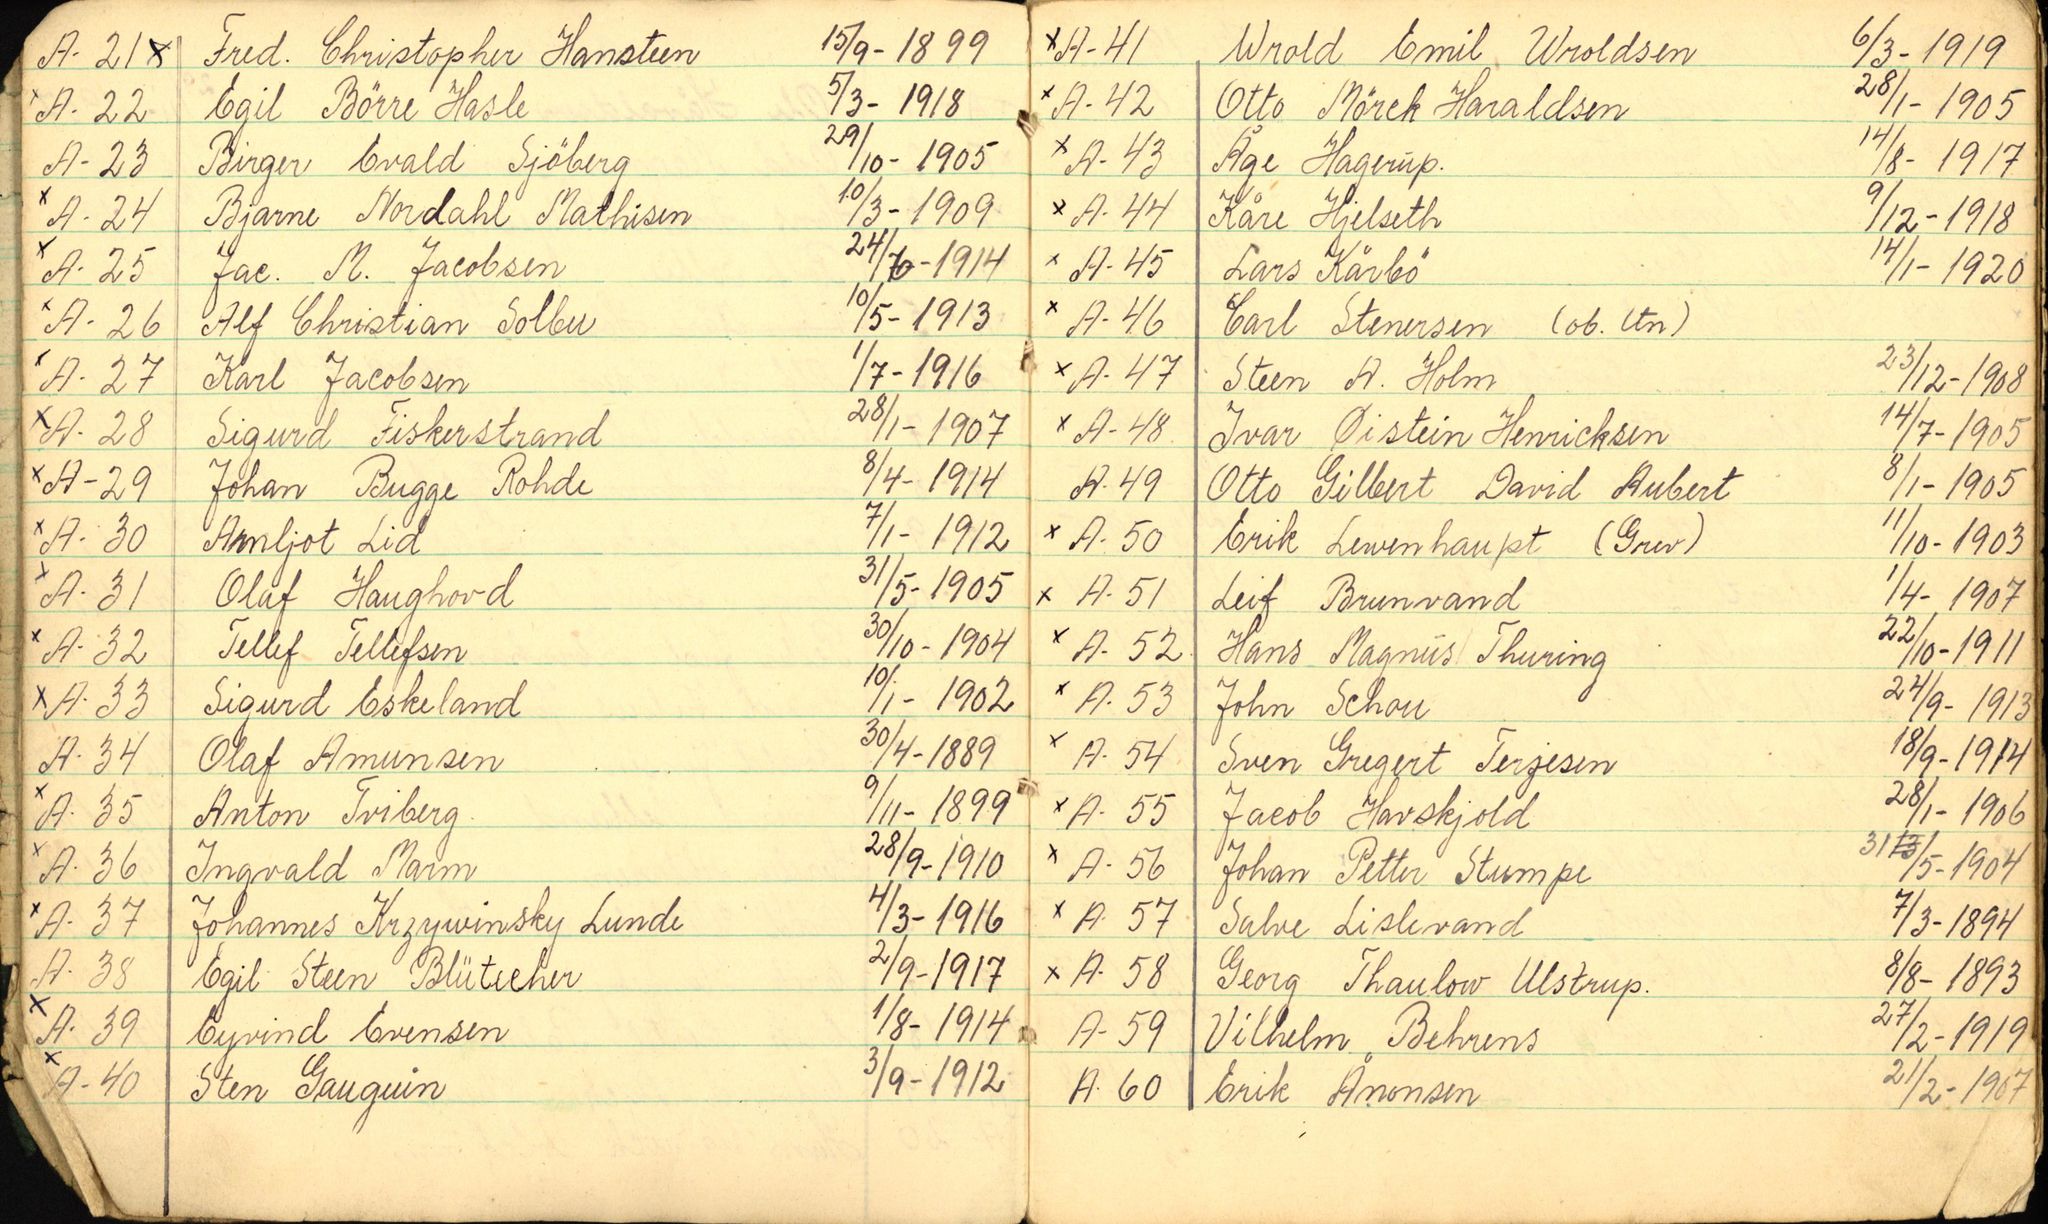 A. 21 x Fred. Christopher Hansteen 15/9 - 1899
x A. 22 Egil Börre Hasle 5/3 - 1918
A- 23 Birger Evald Sjöberg 29/10 - 1905
x A- 24 Bjarne Nordahl Mathisen 10/3 - 1909
x A. 25 Jac. M. Jacobsen 24/ - 1914
x A- 26 Alf Christian Solbu 10/5 - 1913
x A- 27 Karl Jacobsen 1/7 - 1916
x A. 28 Sigurd Fiskerstrand 28/1 - 1907
x A - 29 Johan Bugge Rohde 8/4 - 1914
x A. 30 Arnljot Lid 7/1 - 1912
x A. 31 Olaf Haughovd 31/5 - 1905
x A- 32 Tellef Tellefsen 30/10 - 1904
x A. 33 Sigurd Eskeland 10/1 - 1902
A. 34 Olaf Amunsen 30/4 - 1889
x A. 35 Anton Tviberg. 9/11 - 1899
x A. 36 Ingvald Marm 28/9 - 1910
x A. 37 Johannes Krzywinsky Lunde 4/3 - 1916
A. 38 Egil Steen Blütecher 2/9 - 1917
x A. 39 Eyvind Evensen 1/8 - 1914
x A - 40 Sten Gauguin 3/9 - 1912
x A - 41 Wrold Emil Wroldsen 6/3 - 1919
x A - 42 Otto Mörck Haraldsen 28/1 - 1905
x A - 43 Åge Hagerup. 14/8 - 1917
x A - 44 Kåre Hjelseth 9/12 - 1918
x A - 45 Lars Kårbö 14/1 - 1920
x A - 46 Carl Stenersen (ob. ltn)
x A - 47 Steen A. Holm 23/12 - 1908
x A - 48 Ivar Øistein Henricksen 14/7 - 1905
A. 49 Otto Gilbert David Aubert 8/1 - 1905
x A. 50 Erik Lewenhaupt (Grev) 11/10 - 1903
x A. 51 Leif Brunvand 1/4 - 1907
x A. 52 Hans Magnus Thuring 22/10 - 1911
x A. 53 John Schou 24/9 - 1913
x A. 54 Sven Gregert Terjesen 18/9 - 1914
x A. 55 Jacob Havskjold 28/1 - 1906
x A. 56 Johan Petter Stumpe 31/5 - 1904
x A. 57 Salve Lislevand 7/3 - 1894
x A. 58 Georg Thaulow Ulstrup. 8/8 - 1893
A - 59 Vilhelm Behrens 27/2 - 1919
A. 60 Erik Ånonsen 21/2 - 1907